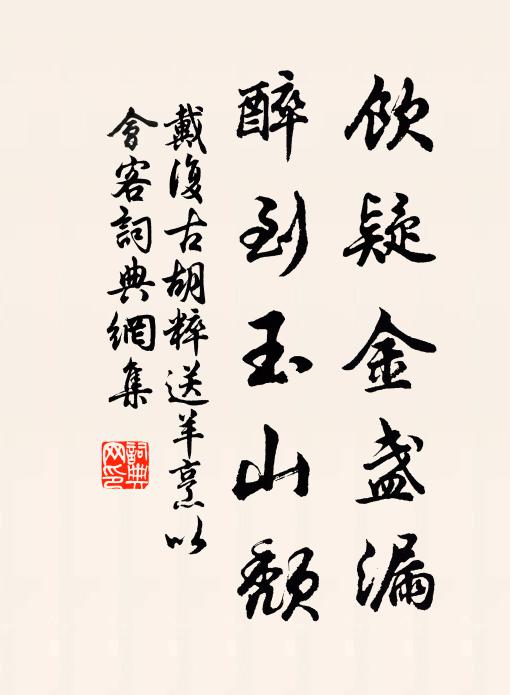 飲疑金盞漏
醉到玉山頹
戴復古胡粹送羊烹以
會客詞典網集
詞典
网印